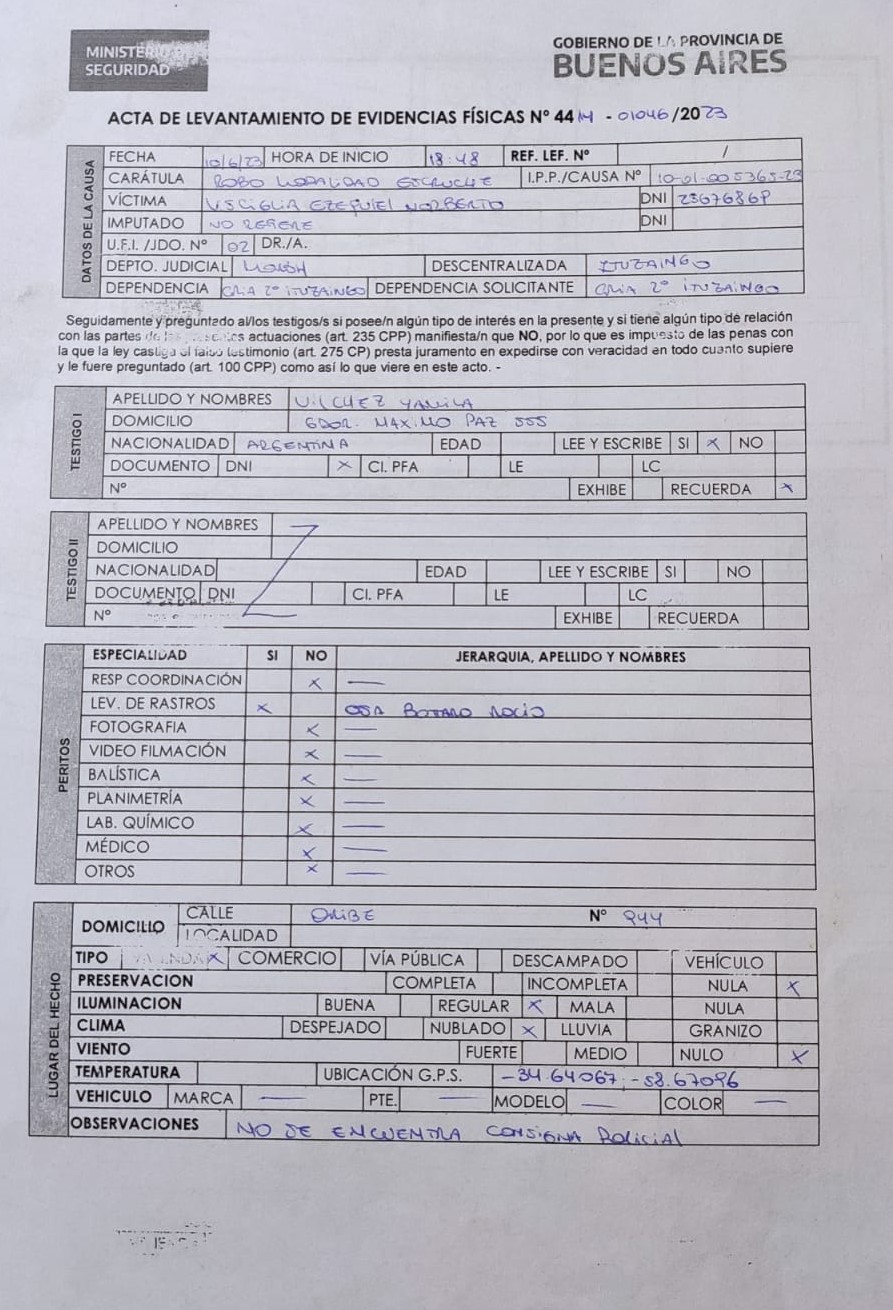 MINISTERIO DE
SEGURIDAD
GOBIERNO DE LA PROVINCIA DE
BUENOS AIRES
ACTA DE LEVANTAMIENTO DE EVIDENCIAS FÍSICAS Nº 44 M - 01046/2023
DATOS DE LA CAUSA
FECHA 10/6/23 HORA DE INICIO 18:48 REF. LEF. Nº /
CARÁTULA ROBO MODALIDAD ESCRUCHE I.P.P./CAUSA Nº 10-01-005365-23
VÍCTIMA EZEQUIEL NORBERTO DNI
IMPUTADO NO REFIERE DNI
U.F.I. /JDO. Nº 02 DR./A.
DEPTO. JUDICIAL MORON DESCENTRALIZADA ITUZAINGO
DEPENDENCIA CRIA 2º ITUZAINGO DEPENDENCIA SOLICITANTE CRIA 2º ITUZAINGO
Seguidamente y preguntado al/los testigos/s si posee/n algún tipo de interés en la presente y si tiene algún tipo de relación
con las partes de las presentes actuaciones (art. 235 CPP) manifiesta/n que NO, por lo que es impuesto de las penas con
la que la ley castiga el falso testimonio (art. 275 CP) presta juramento en expedirse con veracidad en todo cuanto supiere
y le fuere preguntado (art. 100 CPP) como así lo que viere en este acto. -
TESTIGO I
APELLIDO Y NOMBRES VILCHEZ YAMILA
DOMICILIO GDOR. MAXIMO PAZ 555
NACIONALIDAD ARGENTINA EDAD LEE Y ESCRIBE SI X NO
DOCUMENTO DNI X CI. PFA LE LC
Nº EXHIBE RECUERDA X
TESTIGO II
APELLIDO Y NOMBRES
DOMICILIO
NACIONALIDAD EDAD LEE Y ESCRIBE SI NO
DOCUMENTO DNI CI. PFA LE LC
Nº EXHIBE RECUERDA
PERITOS
ESPECIALIDAD SI NO JERARQUIA, APELLIDO Y NOMBRES
RESP COORDINACIÓN X —
LEV. DE RASTROS X ROCIO
FOTOGRAFIA X —
VIDEO FILMACIÓN X —
BALÍSTICA X —
PLANIMETRÍA X —
LAB. QUÍMICO X —
MÉDICO X —
OTROS X —
LUGAR DEL HECHO
DOMICILIO CALLE ORIBE Nº 944
LOCALIDAD
TIPO VIVIENDA X COMERCIO VÍA PÚBLICA DESCAMPADO VEHÍCULO
PRESERVACION COMPLETA INCOMPLETA NULA X
ILUMINACION BUENA REGULAR X MALA NULA
CLIMA DESPEJADO NUBLADO X LLUVIA GRANIZO
VIENTO FUERTE MEDIO NULO X
TEMPERATURA UBICACIÓN G.P.S. -34.64067, -58.67096
VEHICULO MARCA — PTE. — MODELO — COLOR —
OBSERVACIONES NO SE ENCUENTRA CONSIGNA POLICIAL